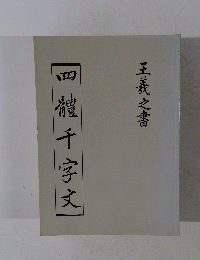 王羲之書
四體千字文